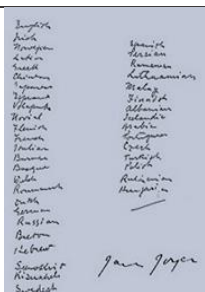 English
Irish
Norwegian
Latin
Greek
Chinese
Japanese
Esperanto
Volapuk
Novial
Flemish
French
Italian
Burmese
Basque
Welsh
Roumansch
Dutch
German
Russian
Breton
Hebrew
Sanskrit
Swedish
Spanish
Persian
Rumanian
Lithuanian
Malay
Finnish
Albanian
Icelandic
Arabian
Portuguese
Czech
Turkish
Polish
Ruthenian
Hungarian
James Joyce